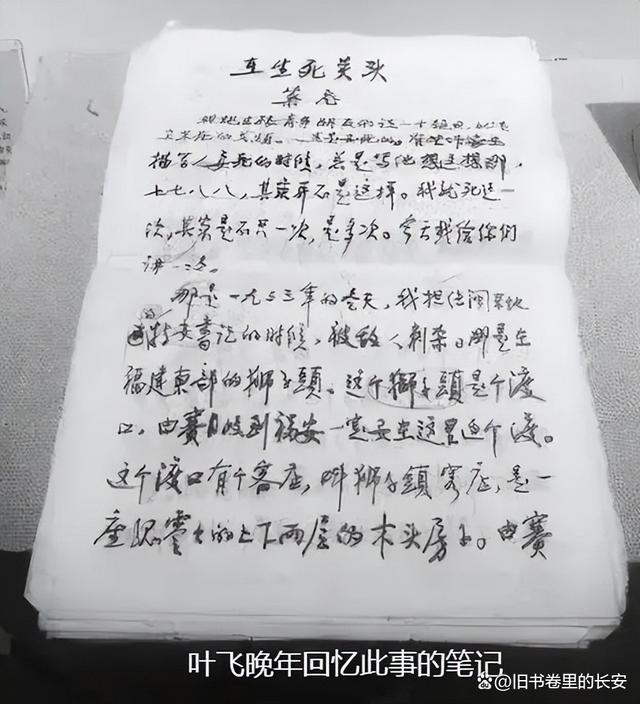 在生死关头
葉飞
描写人要死的时候，总是写他想这想那，
七七八八，其实并不是这样。我就死过一
次，其实是不只一次，是多次。今天我给你们
讲一次。
那是一九三三年的冬天，我担任闽东地
特委書记的时候，被敌人刺杀。那是在
福建東部的獅子頭。这个獅子頭是个渡
口，由賽岐到福安一定要在这里过个渡。
这个渡口有个客店，叫獅子頭客店，是一
座孤零零的上下两层的木头房子。由賽
叶飞晚年回忆此事的笔记
@旧书卷里的长安